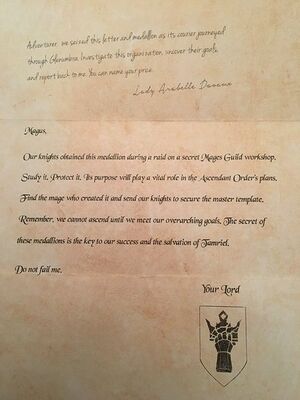 Adventurer, we seized this letter and medallion as its courier journeyed
through Glenumbra. Investigate this organization, uncover their goals,
and report back to me. You can name your price.
Lady Arabelle Davaux
Magus,
Our knights obtained this medallion during a raid on a secret Mages Guild workshop.
Study it. Protect it. Its purpose will play a vital role in the Ascendant Order's plans.
Find the mage who created it and send our knights to secure the master template.
Remember, we cannot ascend until we meet our overarching goals. The secret of
these medallions is the key to our success and the salvation of Tamriel.
Do not fail me.
Your Lord